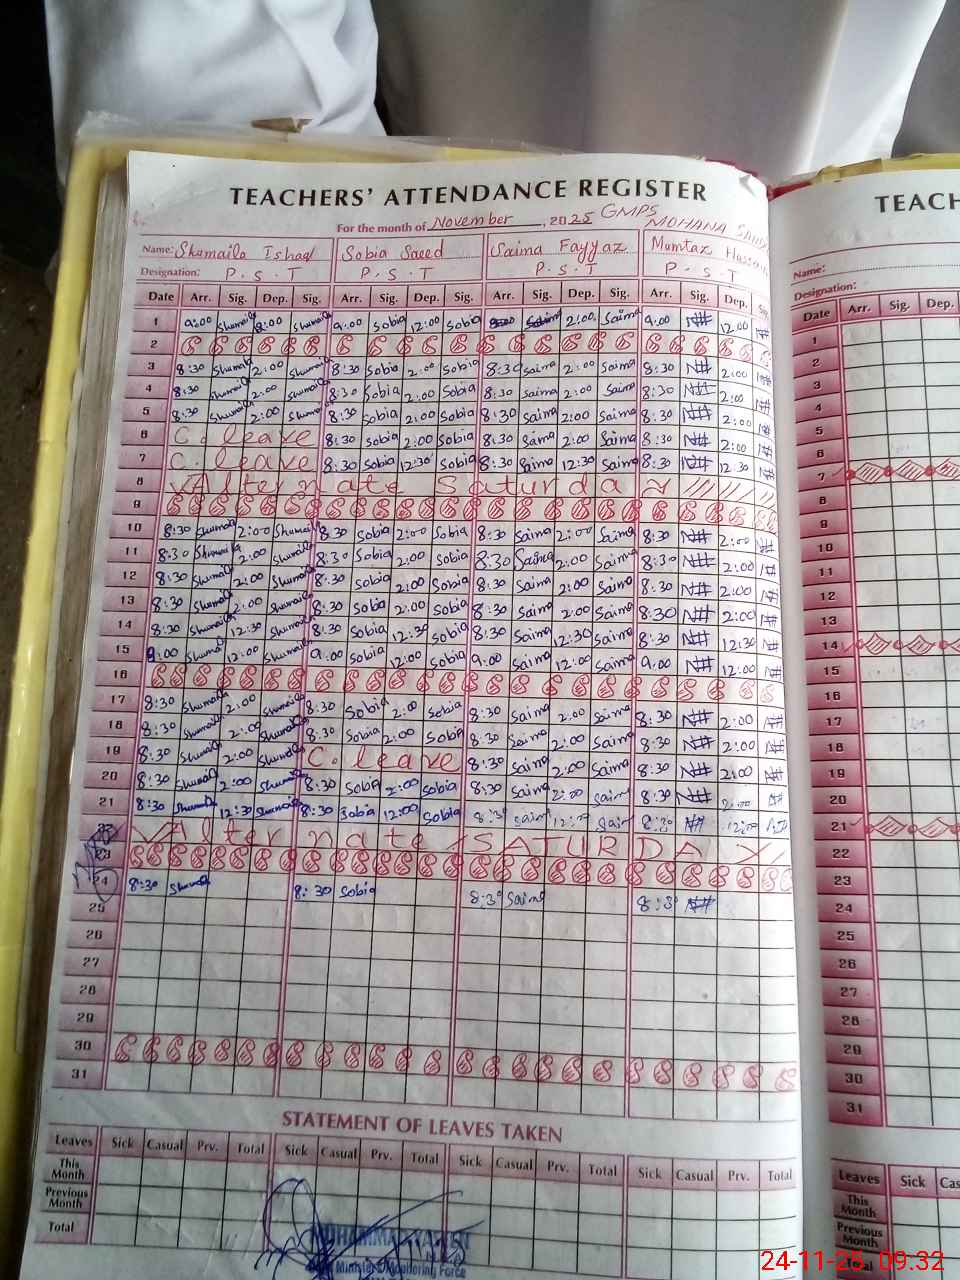 TEACHERS' ATTENDANCE REGISTER
For the month of November, 2025 GMPS MOHANA
Name: Shumaila Ishaq Sobia Saeed Saima Fayyaz Mumtaz
Designation: P.S.T P.S.T P.S.T P.S.T
Date Arr. Sig. Dep. Sig. Arr. Sig. Dep. Sig. Arr. Sig. Dep. Sig. Arr. Sig. Dep.
1 9:00 Shumaila Shumaila 9:00 Sobia 12:00 Sobia 2:00 Saima 9:00 12:00
2
3 8:30 Shumaila 2:00 Shumaila 8:30 Sobia 2:00 Sobia 8:30 Saima 2:00 Saima 8:30 2:00
4 8:30 Shumaila 2:00 Shumaila 8:30 Sobia 2:00 Sobia 8:30 Saima 2:00 Saima 8:30 2:00
5 8:30 Shumaila 2:00 Shumaila 8:30 Sobia 2:00 Sobia 8:30 Saima 2:00 Saima 8:30 2:00
6 C. leave 8:30 Sobia 2:00 Sobia 8:30 Saima 2:00 Saima 8:30 2:00
7 C. leave 8:30 Sobia 12:30 Sobia 8:30 Saima 12:30 Saima 8:30 12:30
8 Alternate Saturday
9
10 8:30 Shumaila 2:00 Shumaila 8:30 Sobia 2:00 Sobia 8:30 Saima 2:00 Saima 8:30 2:00
11 8:30 Shumaila 2:00 Shumaila 8:30 Sobia 2:00 Sobia 8:30 Saima 2:00 Saima 8:30 2:00
12 8:30 Shumaila 2:00 Shumaila 8:30 Sobia 2:00 Sobia 8:30 Saima 2:00 Saima 8:30 2:00
13 8:30 Shumaila 2:00 Shumaila 8:30 Sobia 2:00 Sobia 8:30 Saima 2:00 Saima 8:30 2:00
14 8:30 Shumaila 12:30 Shumaila 8:30 Sobia 12:30 Sobia 8:30 Saima 12:30 Saima 8:30 12:30
15 9:00 Shumaila 12:00 Shumaila 9:00 Sobia 12:00 Sobia 9:00 Saima 12:00 Saima 9:00 12:00
16
17 8:30 Shumaila 2:00 Shumaila 8:30 Sobia 2:00 Sobia 8:30 Saima 2:00 Saima 8:30 2:00
18 8:30 Shumaila 2:00 Shumaila 8:30 Sobia 2:00 Sobia 8:30 Saima 2:00 Saima 8:30 2:00
19 8:30 Shumaila 2:00 Shumaila C. leave 8:30 Saima 2:00 Saima 8:30 2:00
20 8:30 Shumaila 2:00 Shumaila 8:30 Sobia 2:00 Sobia 8:30 Saima 2:00 Saima 8:30 2:00
21 8:30 Shumaila 12:30 Shumaila 8:30 Sobia 12:00 Sobia 8:30 Saima Saima 8:30
22 Alternate SATURDAY
23
24 8:30 Shumaila 8:30 Sobia 8:30 Saima 8:30
25
26
27
28
29
30
31
STATEMENT OF LEAVES TAKEN
Leaves Sick Casual Prv. Total Sick Casual Prv. Total Sick Casual Prv. Total Sick Casual Prv. Total
This Month
Previous Month
Total
Monitoring Force
TEACH
Name:
Designation:
Date Arr. Sig. Dep.
1
2
3
4
5
6
7
8
9
10
11
12
13
14
15
16
17
18
19
20
21
22
23
24
25
26
27
28
29
30
31
Leaves Sick
This Month
Previous Month
Total
24-11-25 09:32